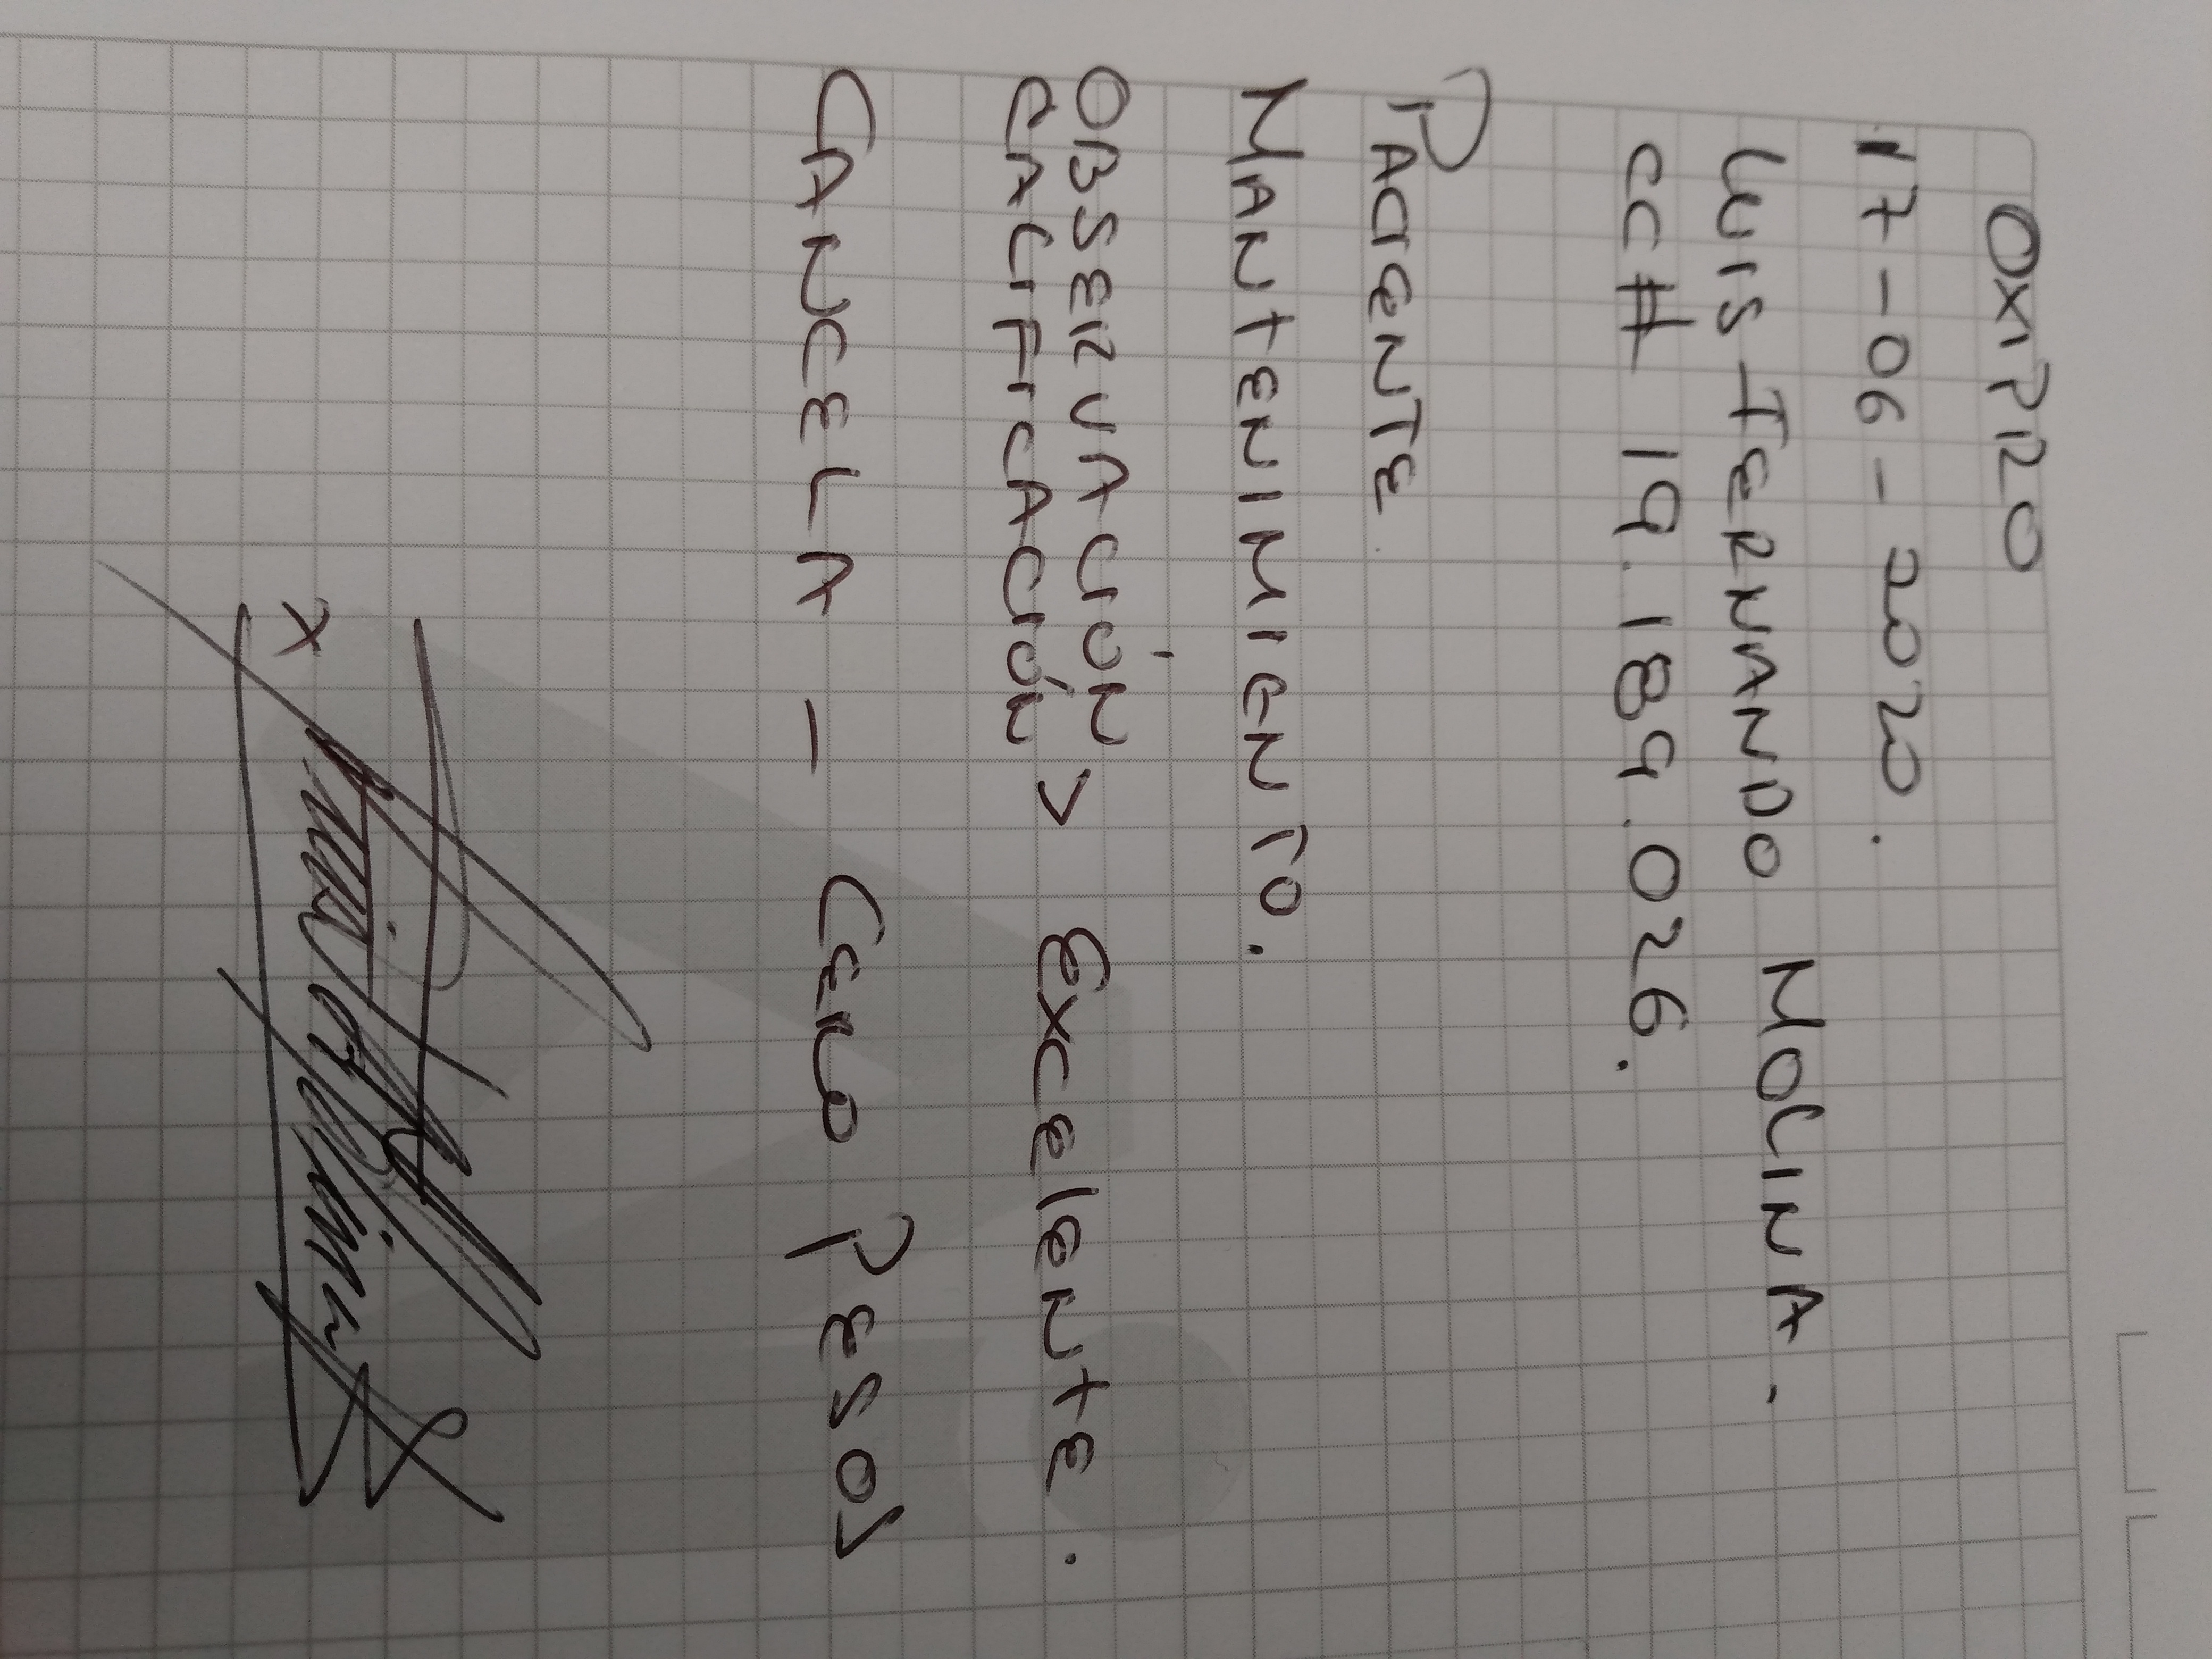 OXIPRO
17-06-2020.
LUIS FERNANDO MOLINA.
CC# 19.189.026.
PACIENTE.
MANTENIMIENTO.
OBSERVACIÓN
CALIFICACIÓN > Excelente.
CANCELA - CERO PESOS
x